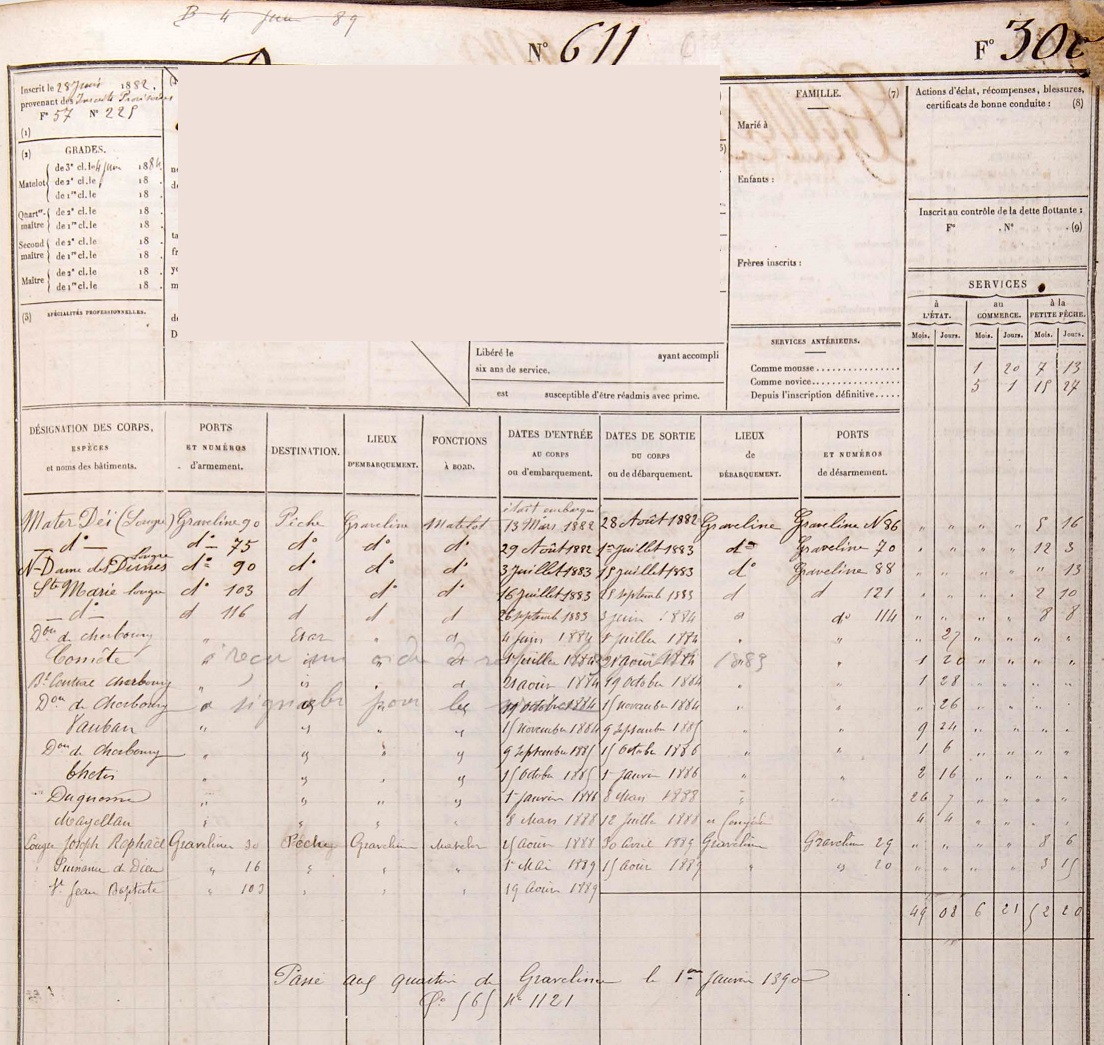 B 4 Juin 89
N° 611
F° 300
Inscrit le 28 1882,
provenant des Inscrits Provisoires
F° 57 N° 225
(1)
(2) GRADES.
Matelot de 3e cl. le 4 juin 1884.
de 2e cl. le 18 .
de 1re cl. le 18 .
Quartr-maître de 2e cl. le 18 .
de 1re cl. le 18 .
Second maître de 2e cl. le 18 .
de 1re cl. le 18 .
Maître de 2e cl. le 18 .
de 1re cl. le 18 .
(3) SPÉCIALITÉS PROFESSIONNELLES.
Libéré le ayant accompli
six ans de service.
est susceptible d'être réadmis avec prime.
FAMILLE. (7)
Marié à
Enfants :
Frères inscrits :
SERVICES ANTÉRIEURS.
Comme mousse
Comme novice
Depuis l'inscription définitive
Actions d'éclat, récompenses, blessures,
certificats de bonne conduite : (8)
Inscrit au contrôle de la dette flottante :
F° . N° . (9)
SERVICES
à L'ÉTAT. au COMMERCE. à la PETITE PÊCHE.
Mois. Jours. Mois. Jours. Mois. Jours.
1 20 7 13
5 1 15 27
DÉSIGNATION DES CORPS, ESPÈCES et noms des bâtiments.
PORTS ET NUMÉROS d'armement.
DESTINATION.
LIEUX D'EMBARQUEMENT.
FONCTIONS À BORD.
DATES D'ENTRÉE AU CORPS ou d'embarquement.
DATES DE SORTIE DU CORPS ou de débarquement.
LIEUX de DÉBARQUEMENT.
PORTS ET NUMÉROS de désarmement.
était embarqué
Mater Deï (Lougre) Graveline 90 Pêche Graveline Matelot 13 Mars 1882 28 Août 1882 Graveline Graveline N 86 " " " " 5 16
d° d° 75 d° d° d° 29 Août 1882 1er Juillet 1883 d° Graveline 70 " " " " 12 3
N-Dame des Dunes Lougre d° 90 d° d° d° 3 Juillet 1883 15 Juillet 1883 d° Graveline 88 " " " " " 13
Ste Marie lougre d° 103 d d° d° 16 Juillet 1883 25 Septemb 1883 d d 121 " " " " 2 10
d° d 116 d d d 26 septemb 1883 3 juin 1884 d d° 114 " " " " 8 8
Don de cherbourg " " d 4 juin 1884 1er juillet 1884 " " " 27 " " " "
Comète " " " 1er juillet 1884 21 août 1884 " " 1 20 " " " "
cherbourg " " d 21 août 1884 19 octobre 1884 " " 1 28 " " " "
Don de Cherbourg " " 19 octobre 1884 15 novembre 1884 " " " 26 " " " "
Vauban " " " " 15 novembre 1884 9 septembre 1885 " " 9 24 " " " "
Don de Cherbourg " " " " 9 septembre 1885 15 octobre 1885 " " 1 6 " " " "
" " " " 15 octobre 1885 1er janvier 1886 " " 2 16 " " " "
" " " " 1er janvier 1886 8 Mars 1888 " " 26 7 " " " "
Magellan " " " " 8 Mars 1888 12 Juillet 1888 en Congé " 4 4 " " " "
Lougre Joseph Raphaël Graveline 30 Pêche Graveline Matelot 25 août 1888 30 avril 1889 Graveline Graveline 29 " " " " 8 6
de Dieu " 16 " " " 1er Mai 1889 15 août 1889 " " 20 " " " " 3 15
St Jean Baptiste " 103 " " " 19 août 1889
49 08 6 21 52 20
a reçu un ordre de 1889
à signaler pour les
Passé aux quartier de Graveline le 1er Janvier 1890
F° 565 N° 1121